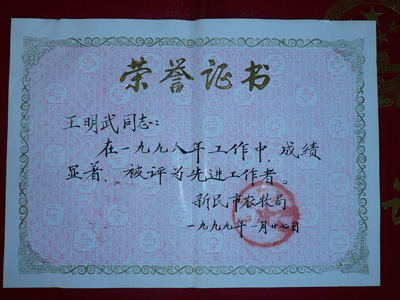 荣誉证书
王明武同志:
在一九九八年工作中,成绩
显著,被评为先进工作者。
新民市农牧局
一九九九年一月廿七日